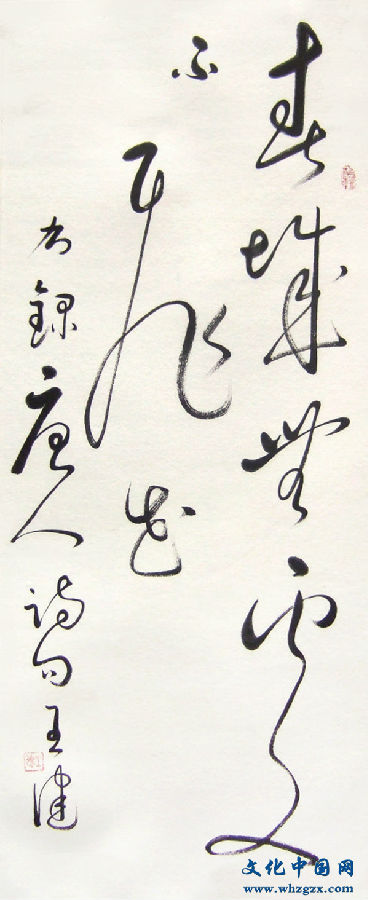 春城無處
不飛花
右錄唐人詩句王健
文化中国网
www.whzgzx.com